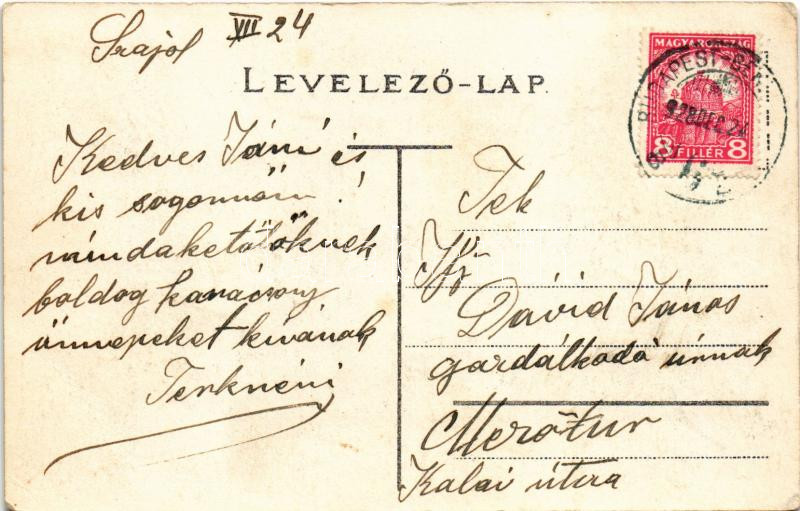 Szajol XII 24
LEVELEZŐ-LAP.
MAGYARORSZÁG
BUDAPEST
928 DEC 24
8 FILLÉR 8
Kedves Jani és
kis sogornőm!
mindaketőtöknek
boldog karácsony
ünnepeket kivánok
Terknéni
Tek
Ifj.
Dávid János
gazdálkodó úrnak
Mezőtur
Kalai útca